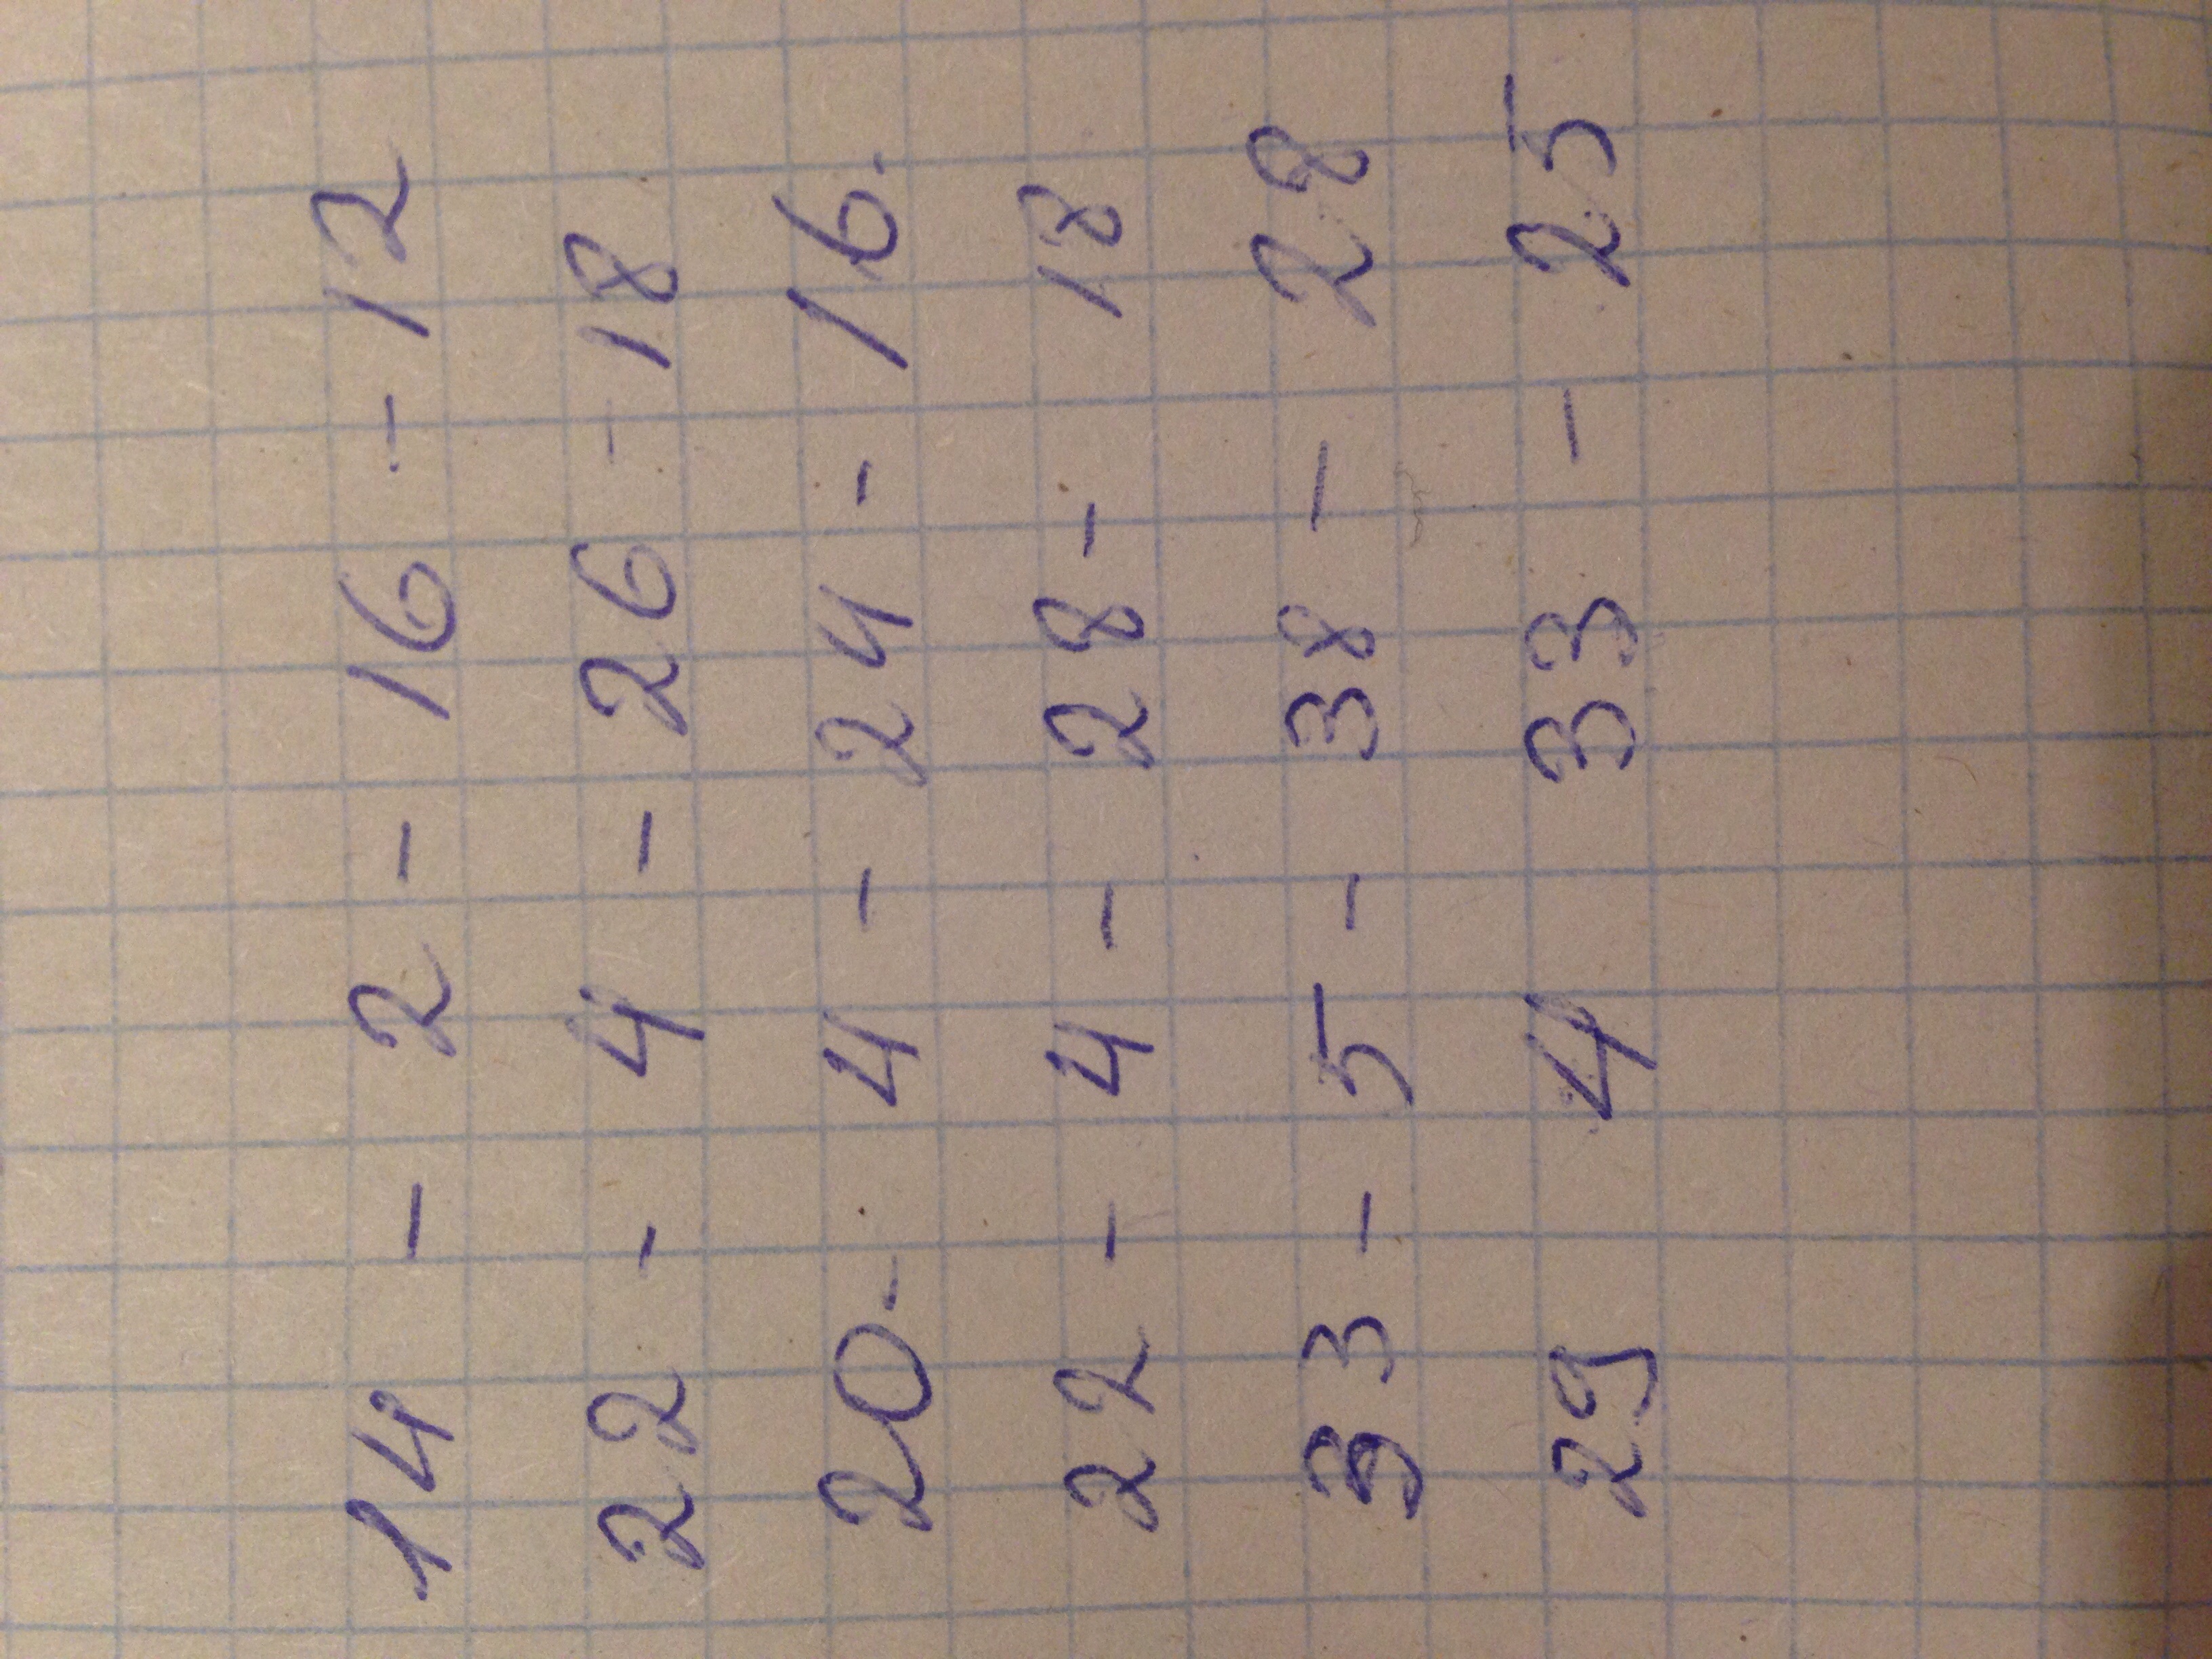 14 - 2 - 16 - 12
22 - 4 - 26 - 18
20 - 4 - 24 - 16.
22 - 4 - 28 - 18
33 - 5 - 38 - 28
29 4 33 - 25